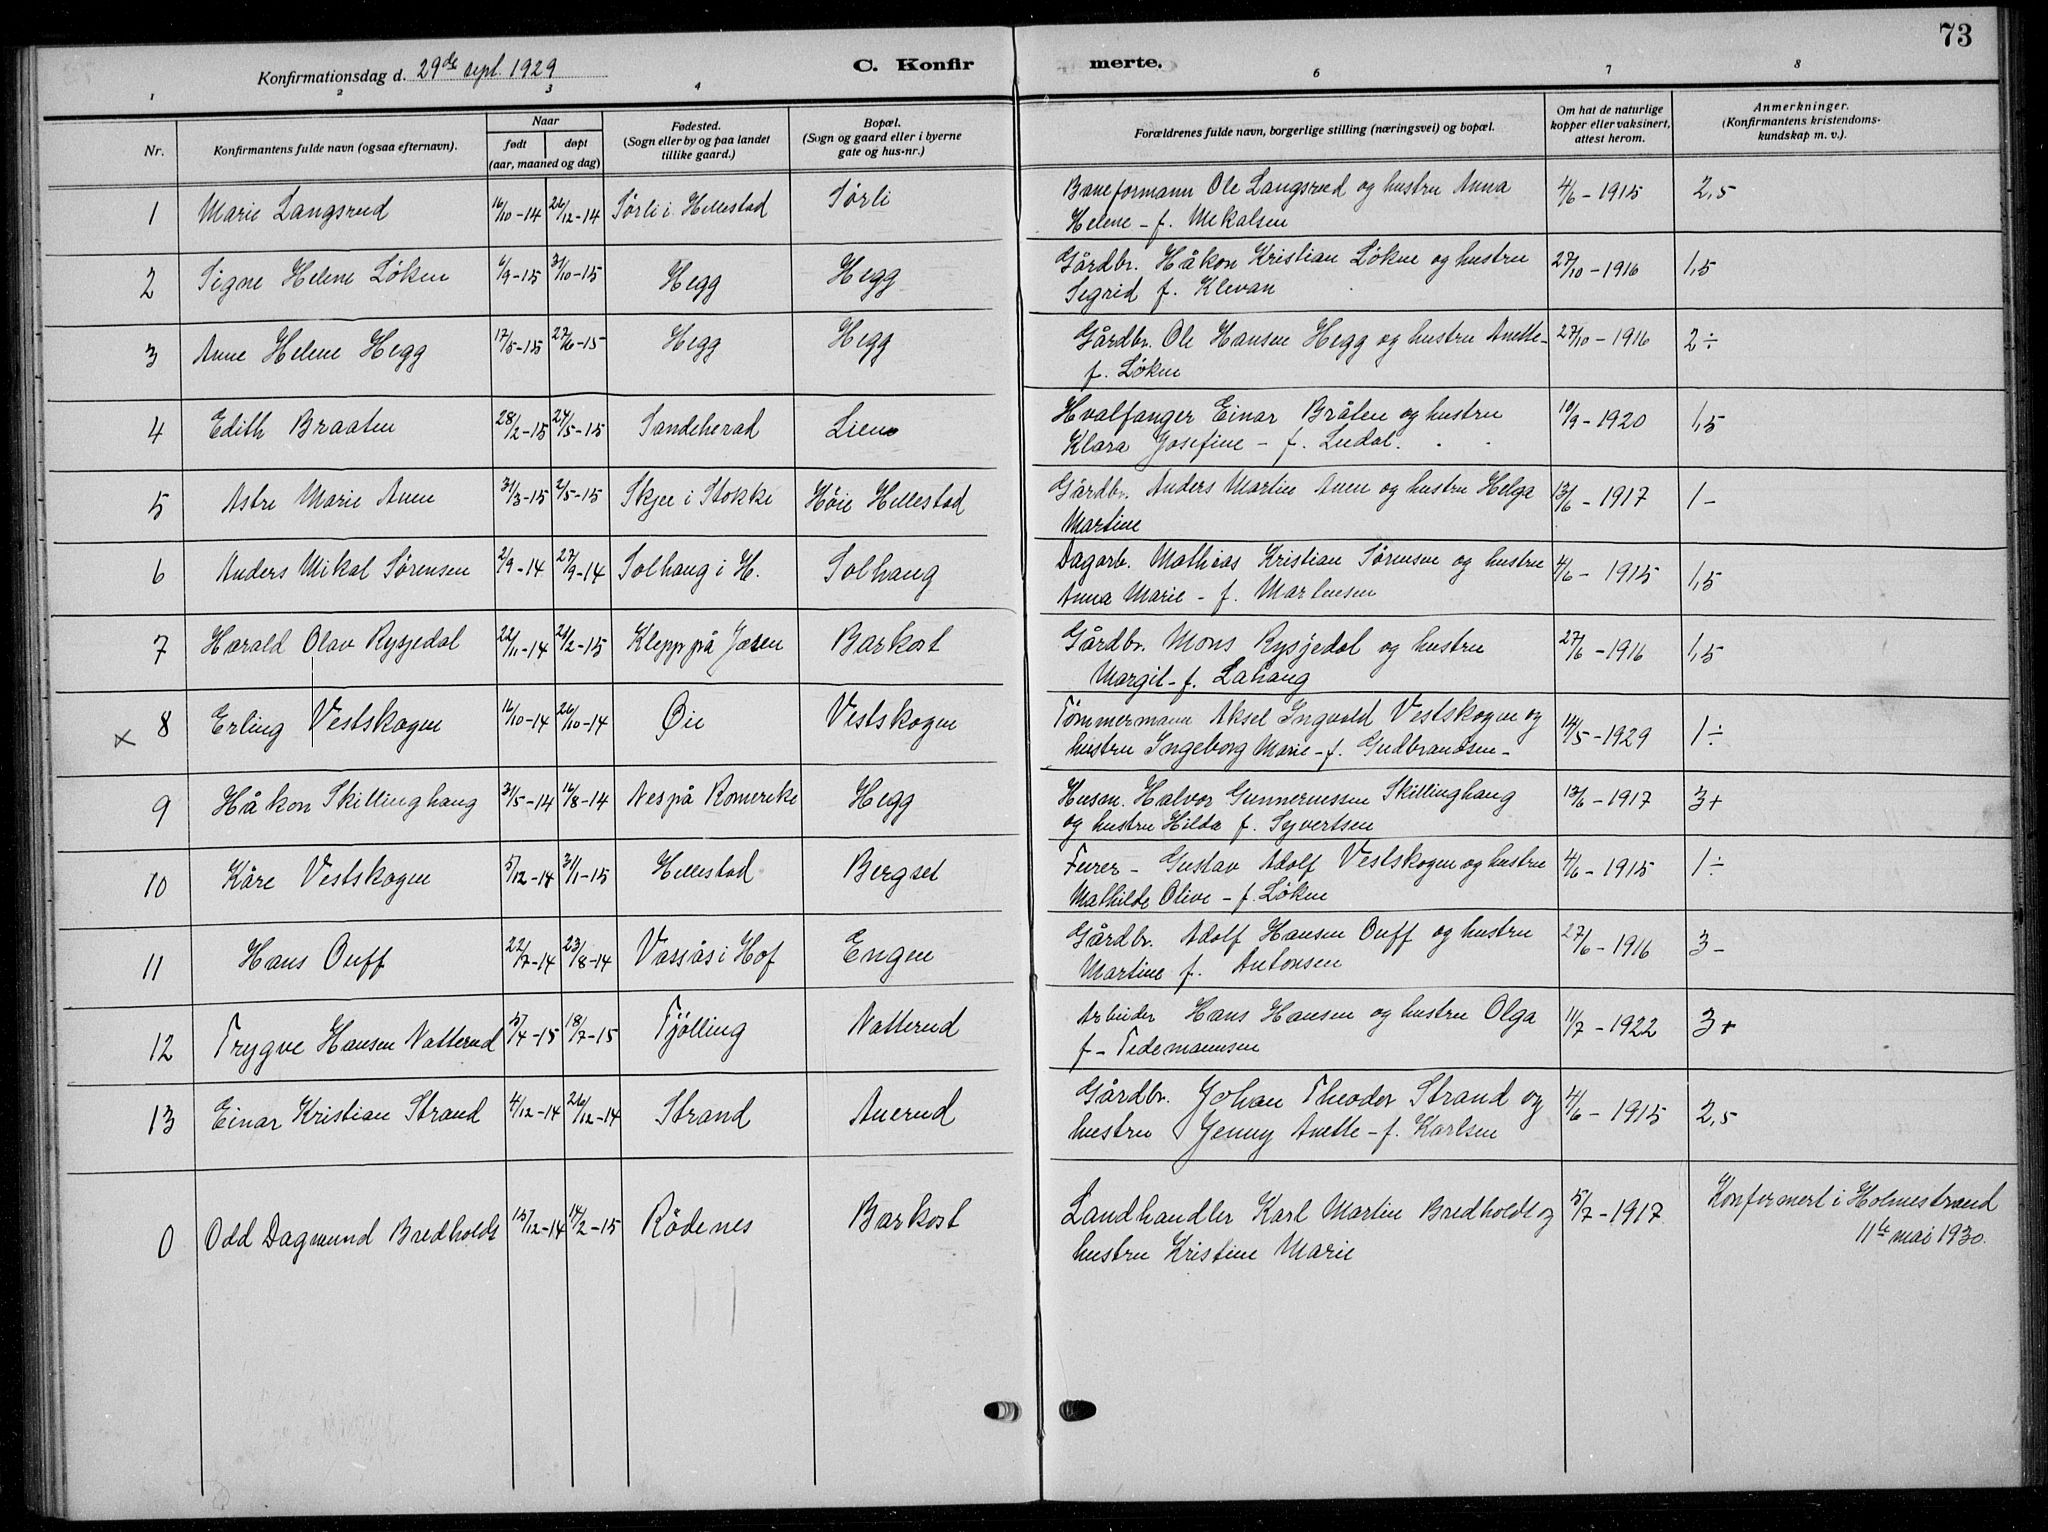 73
Konfirmationsdag d. 29de sept. 1929
C. Konfir merte.
1 2 3 4 5 6 7 8
Nr. | Konfirmantens fulde navn (ogsaa efternavn). | Naar født døpt (aar, maaned og dag) | Fødested. (Sogn eller by og paa landet tillike gaard.) | Bopæl. (Sogn og gaard eller i byerne gate og hus-nr.) | Forældrenes fulde navn, borgerlige stilling (næringsvei) og bopæl. | Om hat de naturlige kopper eller vaksinert, attest herom. | Anmerkninger. (Konfirmantens kristendoms-kundskap m. v.).
1 Marie Langsrud 16/10-14 26/12-14 Sørli i Hillestad Sørli Baneformann Ole Langsrud og hustru Anna 4/6-1915 2,5
Helene - f. Mekalsen
2 Signe Helene Løken 6/9-15 31/10-15 Hegg Hegg Gårdbr. Håkon Kristian Løkne og hustru 27/10-1916 1,5
Sigrid f. Klevan
3 Anne Helene Hegg 17/5-15 27/6-15 Hegg Hegg Gårdbr. Ole Hansen Hegg og hustru Anette- 27/10-1916 2÷
f. Løkne
4 Edith Braaten 28/2-15 24/5-15 Sandeherad Liene Hvalfanger Einar Bråten og hustru 10/9-1920 1,5
Klara Josefine - f. Ludal.
5 Astri Marie Auen 31/3-15 2/5-15 Skjee i Stokke Høie Hillestad Gårdbr. Anders Martin Auen og hustru Helga 13/6-1917 1-
Martine
6 Anders Mikal Sørensen 2/9-14 27/9-14 Solhaug i H. Solhaug Dagarb. Mathias Kristian Sørensen og hustru 4/6-1915 1,5
Anna Marie - f. Martinsen
7 Harald Olav Rysjedal 22/11-14 21/2-15 Klepp på Jæren Barkost Gårdbr. Mons Rysjedal og hustru 27/6-1916 1,5
Margit - f. Lahaug
x 8 Erling Vestskogen 16/10-14 26/10-14 Øie Vestskogen Tømmermann Aksel Ingvald Vestskogen og 14/5-1929 1÷
hustru Ingeborg Marie - f. Gudbrandsen-
9 Håkon Skillinghaug 31/5-14 16/8-14 Nes på Romerike Hegg Husm. Halvor Gunneriussen Skillinghaug 13/6-1917 3+
og hustru Hilda f. Syvertsen
10 Kåre Vestskogen 5/12-14 31/1-15 Hillestad Bergset Furer - Gustav Adolf Vestskogen og hustru 4/6-1915 1÷
Mathilde Olive - f. Løkne
11 Hans Ouff 22/7-14 23/8-14 Vassås i Hof Engen Gårdbr. Adolf Hansen Ouff og hustru 27/6-1916 3-
Martine f. Antonsen
12 Trygve Hansen Natterud 5/4-15 18/7-15 Tjølling Natterud Arbeider Hans Hansen og hustru Olga 11/7-1922 3+
f- Tidemannsen
13 Einar Kristian Strand 4/12-14 26/12-14 Strand Auerud Gårdbr. Johan Theodor Strand og 4/6-1915 2,5
hustru Jenny Anette - f. Karlsen
0 Odd Dagmund Bredholdt 15/12-14 14/2-15 Rödenes Barkost Landhandler Karl Martin Bredholdt og 5/7-1917 Konfirmert i Holmestrand
hustru Kristine Marie 11te mai 1930.